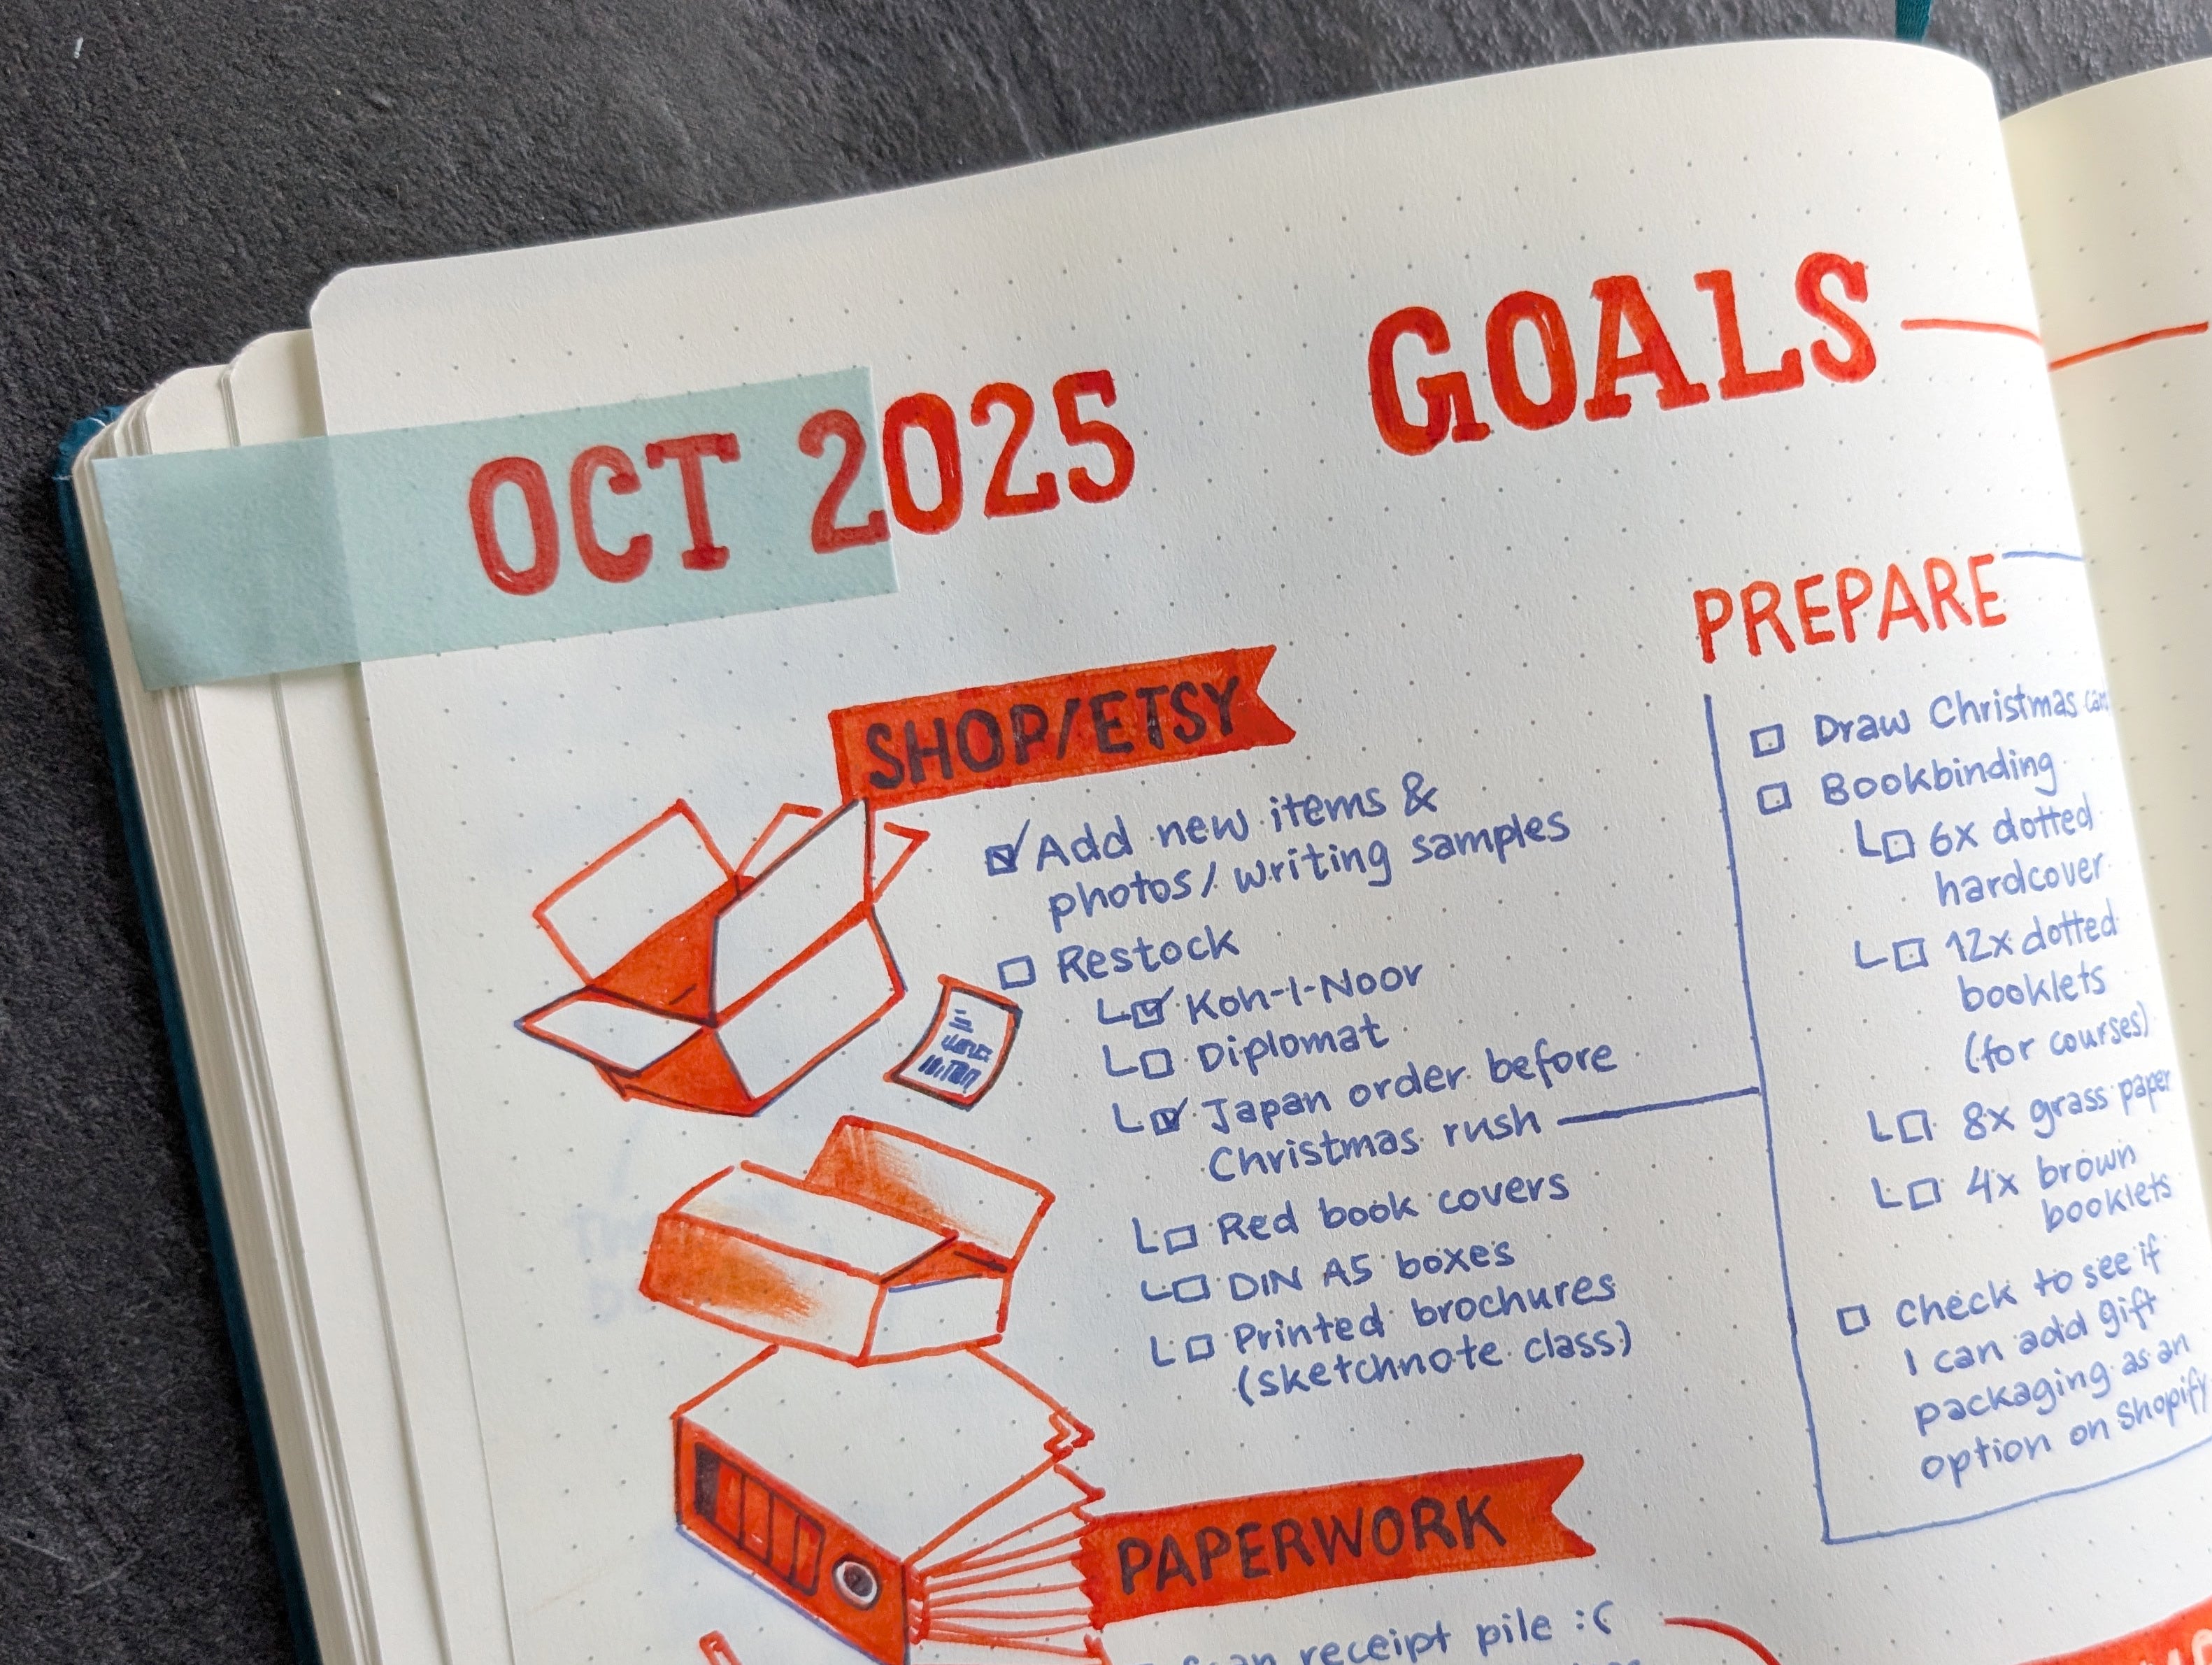 OCT 2025 GOALS
SHOP/ETSY
Add new items &
photos/writing samples
Restock
Koh-I-Noor
Diplomat
Japan order before
Christmas rush
Red book covers
DIN A5 boxes
Printed brochures
(sketchnote class)
PREPARE
Draw Christmas
Bookbinding
6x dotted
hardcover
12x dotted
booklets
(for courses)
8x grass paper
4x brown
booklets
Check to see if
I can add gift
packaging as an
option on Shopify
PAPERWORK
receipt pile :(